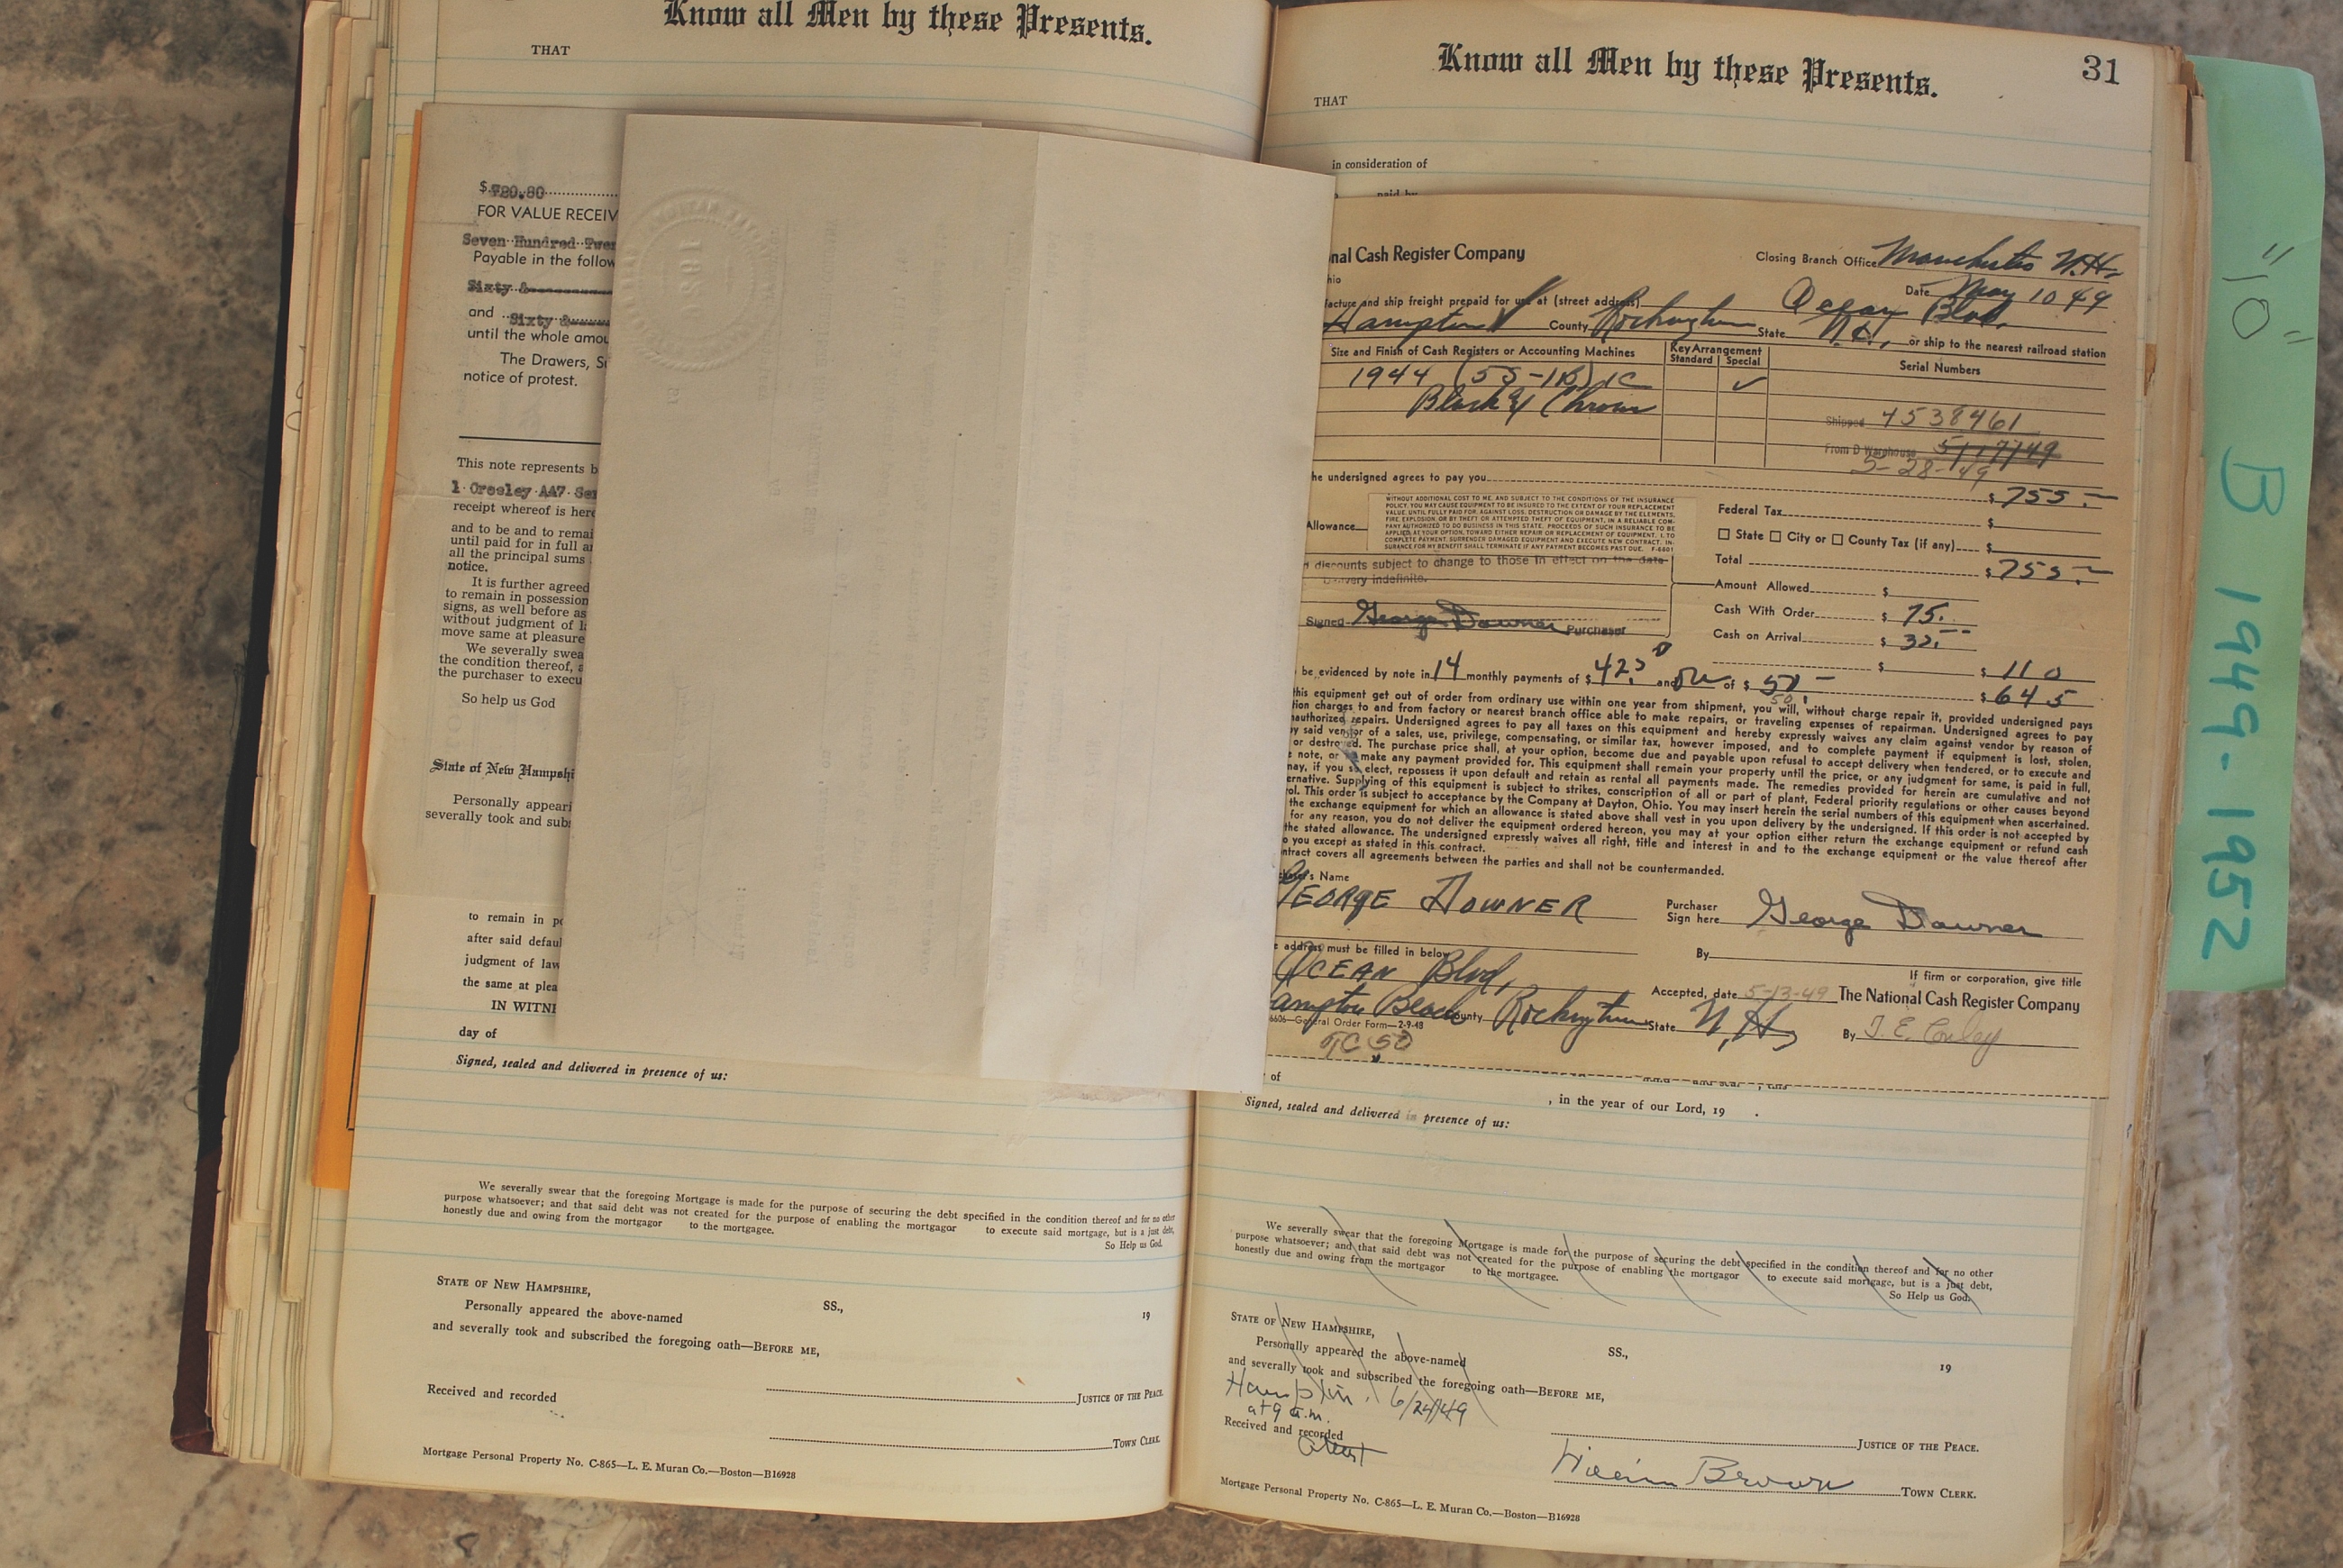 Know all Men by these Presents.
THAT
$ 720.80
FOR VALUE RECEIV
Seven Hundred Twen
Payable in the follow
Sixty &
and Sixty &
until the whole amou
The Drawers, S
notice of protest.
This note represents b
1 Creeley AA7 Ser
receipt whereof is here
and to be and to remai
until paid for in full a
all the principal sums
notice.
It is further agreed
to remain in possession
signs, as well before as
without judgment of l
move same at pleasure
We severally swea
the condition thereof, a
the purchaser to execu
So help us God
State of New Hampshi
Personally appeari
severally took and subs
to remain in po
after said defaul
judgment of law
the same at plea
IN WITNE
day of
Signed, sealed and delivered in presence of us:
We severally swear that the foregoing Mortgage is made for the purpose of securing the debt specified in the condition thereof and for no other
purpose whatsoever; and that said debt was not created for the purpose of enabling the mortgagor to execute said mortgage, but is a just debt,
honestly due and owing from the mortgagor to the mortgagee.
So Help us God.
STATE OF NEW HAMPSHIRE, SS., 19
Personally appeared the above-named
and severally took and subscribed the foregoing oath—BEFORE ME,
JUSTICE OF THE PEACE.
Received and recorded
TOWN CLERK.
Mortgage Personal Property No. C-865—L. E. Muran Co.—Boston—B16928
Know all Men by these Presents.
31
THAT
in consideration of
paid by
nal Cash Register Company
Closing Branch Office Manchester N.H.
hio
Date May 10 49
facture and ship freight prepaid for use at (street address) Ocean Blvd.
Hampton County Rockingham State N.H., or ship to the nearest railroad station
Size and Finish of Cash Registers or Accounting Machines
Key Arrangement
Standard Special
Serial Numbers
1944 (5S-1B) 1C
Black & Chrome
Shipped 4538461
From D Warehouse 5/17/49
5-28-49
he undersigned agrees to pay you $ 755.—
WITHOUT ADDITIONAL COST TO ME, AND SUBJECT TO THE CONDITIONS OF THE INSURANCE
POLICY, YOU MAY CAUSE EQUIPMENT TO BE INSURED TO THE EXTENT OF YOUR REPLACEMENT
VALUE, UNTIL FULLY PAID FOR, AGAINST LOSS, DESTRUCTION OR DAMAGE BY THE ELEMENTS,
FIRE, EXPLOSION, OR BY THEFT OR ATTEMPTED THEFT OF EQUIPMENT, IN A RELIABLE COM-
PANY AUTHORIZED TO DO BUSINESS IN THIS STATE. PROCEEDS OF SUCH INSURANCE TO BE
APPLIED, AT YOUR OPTION, TOWARD EITHER REPAIR OR REPLACEMENT OF EQUIPMENT, I, TO
COMPLETE PAYMENT, SURRENDER DAMAGED EQUIPMENT AND EXECUTE NEW CONTRACT. IN-
SURANCE FOR MY BENEFIT SHALL TERMINATE IF ANY PAYMENT BECOMES PAST DUE. F-6601
Allowance
Federal Tax $
State City or County Tax (if any) $
Total $ 755.—
d discounts subject to change to those in effect on the date
Delivery indefinite.
Amount Allowed $
Cash With Order $ 75.
Signed George Downer Purchaser
Cash on Arrival $ 32.
$ $ 110
be evidenced by note in 14 monthly payments of $ 42.50 and one of $ 50.— $ 645
50.
this equipment get out of order from ordinary use within one year from shipment, you will, without charge repair it, provided undersigned pays
tion charges to and from factory or nearest branch office able to make repairs, or traveling expenses of repairman. Undersigned agrees to pay
nauthorized repairs. Undersigned agrees to pay all taxes on this equipment and hereby expressly waives any claim against vendor by reason of
y said vendor of a sales, use, privilege, compensating, or similar tax, however imposed, and to complete payment if equipment is lost, stolen,
or destroyed. The purchase price shall, at your option, become due and payable upon refusal to accept delivery when tendered, or to execute and
note, or to make any payment provided for. This equipment shall remain your property until the price, or any judgment for same, is paid in full,
may, if you so elect, repossess it upon default and retain as rental all payments made. The remedies provided for herein are cumulative and not
ernative. Supplying of this equipment is subject to strikes, conscription of all or part of plant, Federal priority regulations or other causes beyond
rol. This order is subject to acceptance by the Company at Dayton, Ohio. You may insert herein the serial numbers of this equipment when ascertained.
the exchange equipment for which an allowance is stated above shall vest in you upon delivery by the undersigned. If this order is not accepted by
for any reason, you do not deliver the equipment ordered hereon, you may at your option either return the exchange equipment or refund cash
the stated allowance. The undersigned expressly waives all right, title and interest in and to the exchange equipment or the value thereof after
o you except as stated in this contract.
ntract covers all agreements between the parties and shall not be countermanded.
chaser's Name
GEORGE DOWNER
Purchaser
Sign here George Downer
e address must be filled in below
By
OCEAN Blvd,
If firm or corporation, give title
Accepted, date 5-13-49 The National Cash Register Company
ampton Beach County Rockingham State N.H.
By
6606—General Order Form—2-9-48
TC 50
of
, in the year of our Lord, 19 .
Signed, sealed and delivered in presence of us:
We severally swear that the foregoing Mortgage is made for the purpose of securing the debt specified in the condition thereof and for no other
purpose whatsoever; and that said debt was not created for the purpose of enabling the mortgagor to execute said mortgage, but is a just debt,
honestly due and owing from the mortgagor to the mortgagee.
So Help us God.
STATE OF NEW HAMPSHIRE, SS., 19
Personally appeared the above-named
and severally took and subscribed the foregoing oath—BEFORE ME,
Hampton, 6/24/49
at 9 a.m.
JUSTICE OF THE PEACE.
Received and recorded
Attest
William Brown TOWN CLERK.
Mortgage Personal Property No. C-865—L. E. Muran Co.—Boston—B16928
"10" B 1949-1952